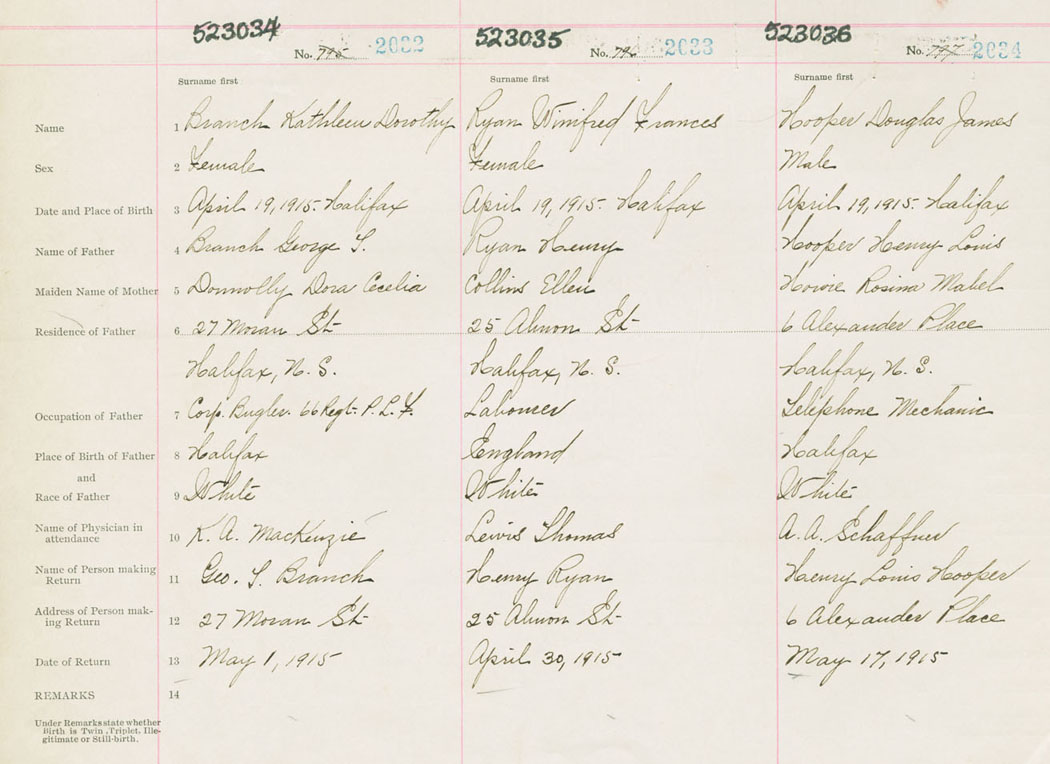 523034 523035 523036
No. 795 2032 No. 2033 No. 797 2034
Surname first Surname first Surname first
Name 1 Branch Kathleen Dorothy Ryan Winifred Frances Hooper Douglas James
Sex 2 Female Female Male
Date and Place of Birth 3 April 19, 1915. Halifax April 19, 1915. Halifax April 19, 1915. Halifax
Name of Father 4 Branch George S. Ryan Henry Hooper Henry Louis
Maiden Name of Mother 5 Donnolly Dora Cecelia Collins Ellen Howie Rosina Mabel
Residence of Father 6 27 Moran St- 25 Almon St- 6 Alexander Place
Halifax, N. S. Halifax, N. S. Halifax, N. S.
Occupation of Father 7 Corp. Bugler. 66 Regt. P. L. F. Labourer Telephone Mechanic
Place of Birth of Father 8 Halifax England Halifax
and
Race of Father 9 White White White
Name of Physician in
attendance 10 K. A. MacKenzie Lewis Thomas A. A. Schaffner
Name of Person making
Return 11 Geo. S. Branch Henry Ryan Henry Louis Hooper
Address of Person mak-
ing Return 12 27 Moran St- 25 Almon St- 6 Alexander Place
Date of Return 13 May 1, 1915 April 30, 1915 May 17, 1915
REMARKS 14
Under Remarks state whether
Birth is Twin, Triplet, Ille-
gitimate or Still-birth.